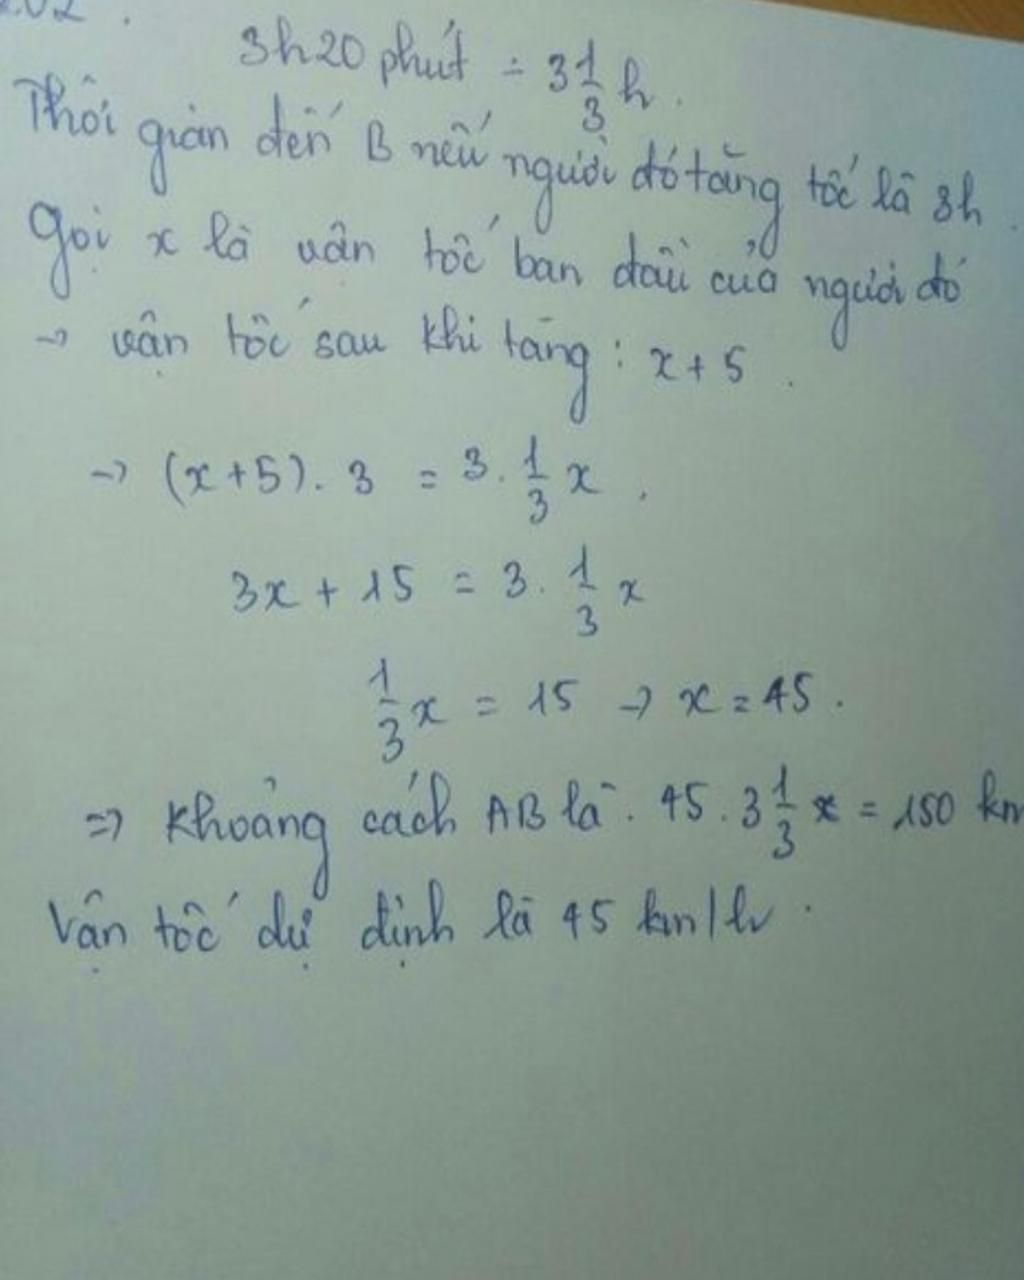 3h20 phút = 3 1/3 h.
Thời gian đến B nếu người đó tăng tốc là 3h.
Gọi x là vận tốc ban đầu của người đó
→ vận tốc sau khi tăng : x + 5.
→ (x + 5). 3 = 3. 1/3 x.
3x + 15 = 3. 1/3 x
1/3 x = 15 → x = 45.
⇒ Khoảng cách AB là : 45. 3 1/3 x = 150 km
Vận tốc dự định là 45 km/h.